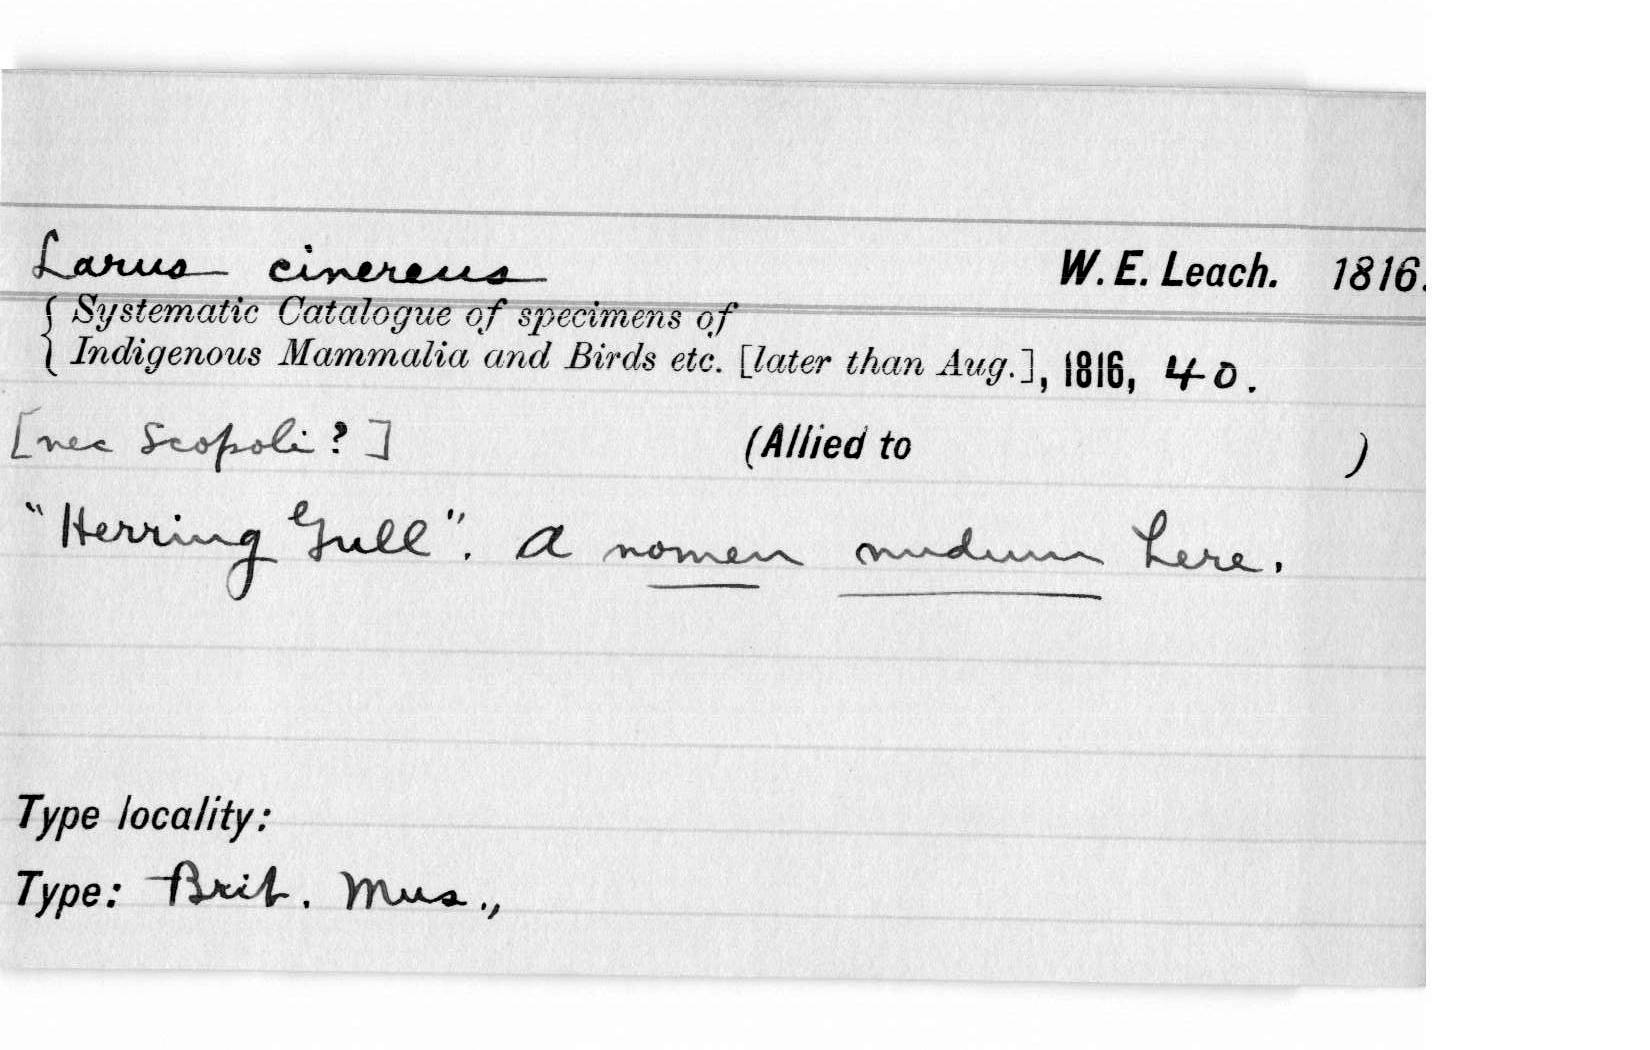 Larus cinereus W. E. Leach. 1816.
{ Systematic Catalogue of specimens of
{ Indigenous Mammalia and Birds etc. [later than Aug.], 1816, 40.
[nec Scopoli ? ] (Allied to )
"Herring Gull". A nomen nudum here.
Type locality:
Type: Brit. Mus.,